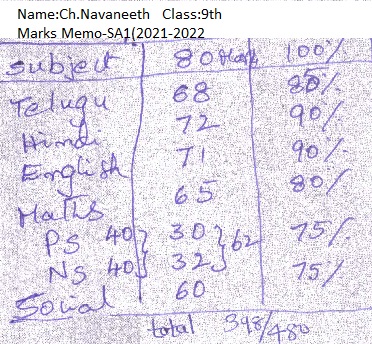 Name:Ch.Navaneeth Class:9th
Marks Memo-SA1(2021-2022
Subject 80 Marks 100%
Telugu 68 85%
Hindi 72 90%
English 71 90%
Maths 65 80%
PS 40 } 30 } 62 75%
NS 40 } 32 } 75%
Social 60
total 398/480